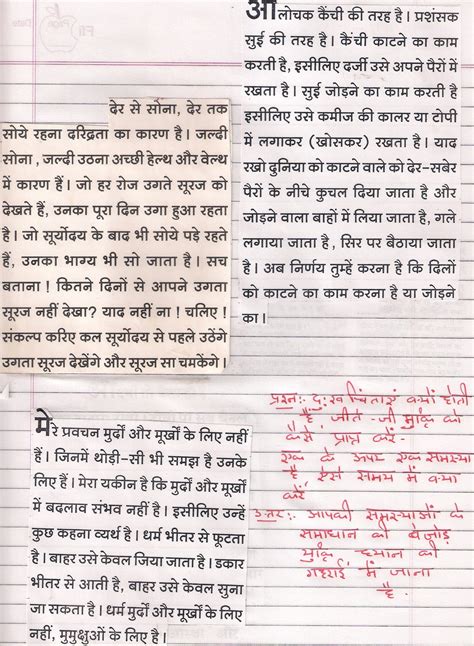 आलोचक कैंची की तरह है। प्रशंसक
सुई की तरह है। कैंची काटने का काम
करती है, इसीलिए दर्जी उसे अपने पैरों में
रखता है। सुई जोड़ने का काम करती है
इसीलिए उसे कमीज की कालर या टोपी
में लगाकर (खोसकर) रखता है। याद
रखो दुनिया को काटने वाले को देर-सबेर
पैरों के नीचे कुचल दिया जाता है और
जोड़ने वाला बाहों में लिया जाता है, गले
लगाया जाता है, सिर पर बैठाया जाता
है। अब निर्णय तुम्हें करना है कि दिलों
को काटने का काम करना है या जोड़ने
का।
देर से सोना, देर तक
सोये रहना दरिद्रता का कारण है। जल्दी
सोना, जल्दी उठना अच्छी हेल्थ और वेल्थ
में कारण हैं। जो हर रोज उगते सूरज को
देखते हैं, उनका पूरा दिन उगा हुआ रहता
है। जो सूर्योदय के बाद भी सोये पड़े रहते
हैं, उनका भाग्य भी सो जाता है। सच
बताना! कितने दिनों से आपने उगता
सूरज नहीं देखा? याद नहीं ना! चलिए!
संकल्प करिए कल सूर्योदय से पहले उठेंगे
उगता सूरज देखेंगे और सूरज सा चमकेंगे।
मेरे प्रवचन मुर्दों और मूर्खों के लिए नहीं
हैं। जिनमें थोड़ी-सी भी समझ है उनके
लिए हैं। मेरा यकीन है कि मुर्दों और मूर्खों
में बदलाव संभव नहीं है। इसीलिए उन्हें
कुछ कहना व्यर्थ है। धर्म भीतर से फूटता
है। बाहर उसे केवल जिया जाता है। डकार
भीतर से आती है, बाहर उसे केवल सुना
जा सकता है। धर्म मुर्दों और मूर्खों के लिए
नहीं, मुमुक्षुओं के लिए है।
प्रश्न:- दु:ख चिंताएं क्यों होती
हैं जीते-जी मुक्ति को
कैसे प्राप्त करें-
एक के ऊपर एक समस्या
है, ऐसे समय में क्या
करें
उत्तर:- आपकी समस्याओं के
समाधान की बेजोड़
मुक्ति ध्यान की
गहराई में जाना
है.